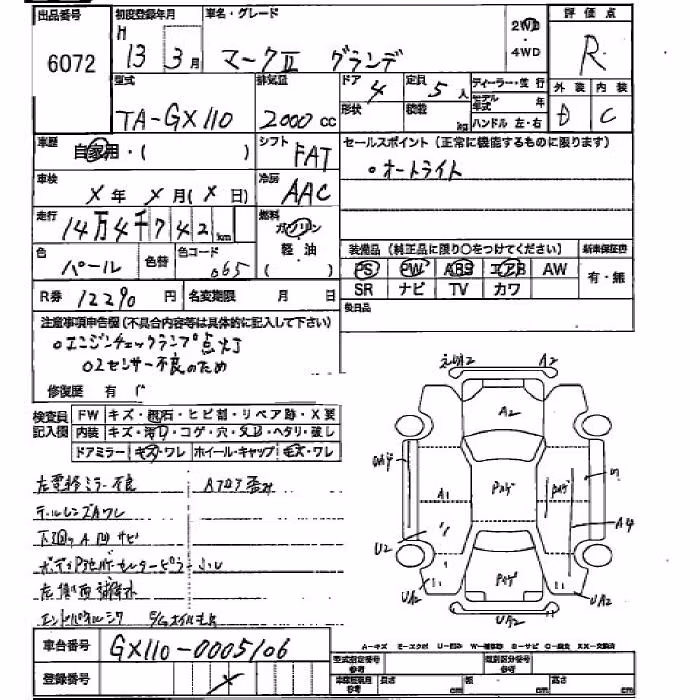 出品番号 初度登録年月 車名・グレード 評価点
6072 H 13年3月 マークⅡ グランデ 2WD・4WD R
型式 排気量 ドア 4 定員 5人 ディーラー・並行 外装 内装
TA-GX110 2000cc 形状 積載 kg モデル年式 年 ハンドル 左・右 D C
車歴 自家用・( ) シフト FAT セールスポイント(正常に機能するものに限ります)
車検 X年X月(X日) 冷房 AAC ○オートライト
走行 14万4千742km 燃料 ガソリン
軽油
( )
色 パール 色替 色コード 065 装備品(純正品に限り○をつけてください) 新車保証書
PS PW ABS エアB AW 有・無
R券 12290円 名変期限 月 日 SR ナビ TV カワ
後日品
注意事項申告欄(不具合内容等は具体的に記入して下さい)
○エンジンチェックランプ点灯
O2センサー不良のため
修復歴 有
検査員記入欄 FW キズ・飛石・ヒビ割・リペア跡・X要
内装 キズ・汚れ・コゲ・穴・スレ・ヘタリ・破し
ドアミラー キズ・ワレ ホイール・キャップ キズ・ワレ
左電格ミラー不良 Aフロア歪み
テールレンズAワレ
下廻りA凹サビ
エンドパネルシワ
えぐれ2 A2
A2
A4 A1 Pカゲ Pカゲ
A4
U2
UA2 Pカゲ UA2
UA2
車台番号 GX110-0005106
登録番号 X
A-キズ E-エクボ U-凹み W-補修跡 S-サビ C-腐食 XX-交換済
型式指定番号 参考 類別区分番号 参考
長さ cm 幅 cm 高さ cm